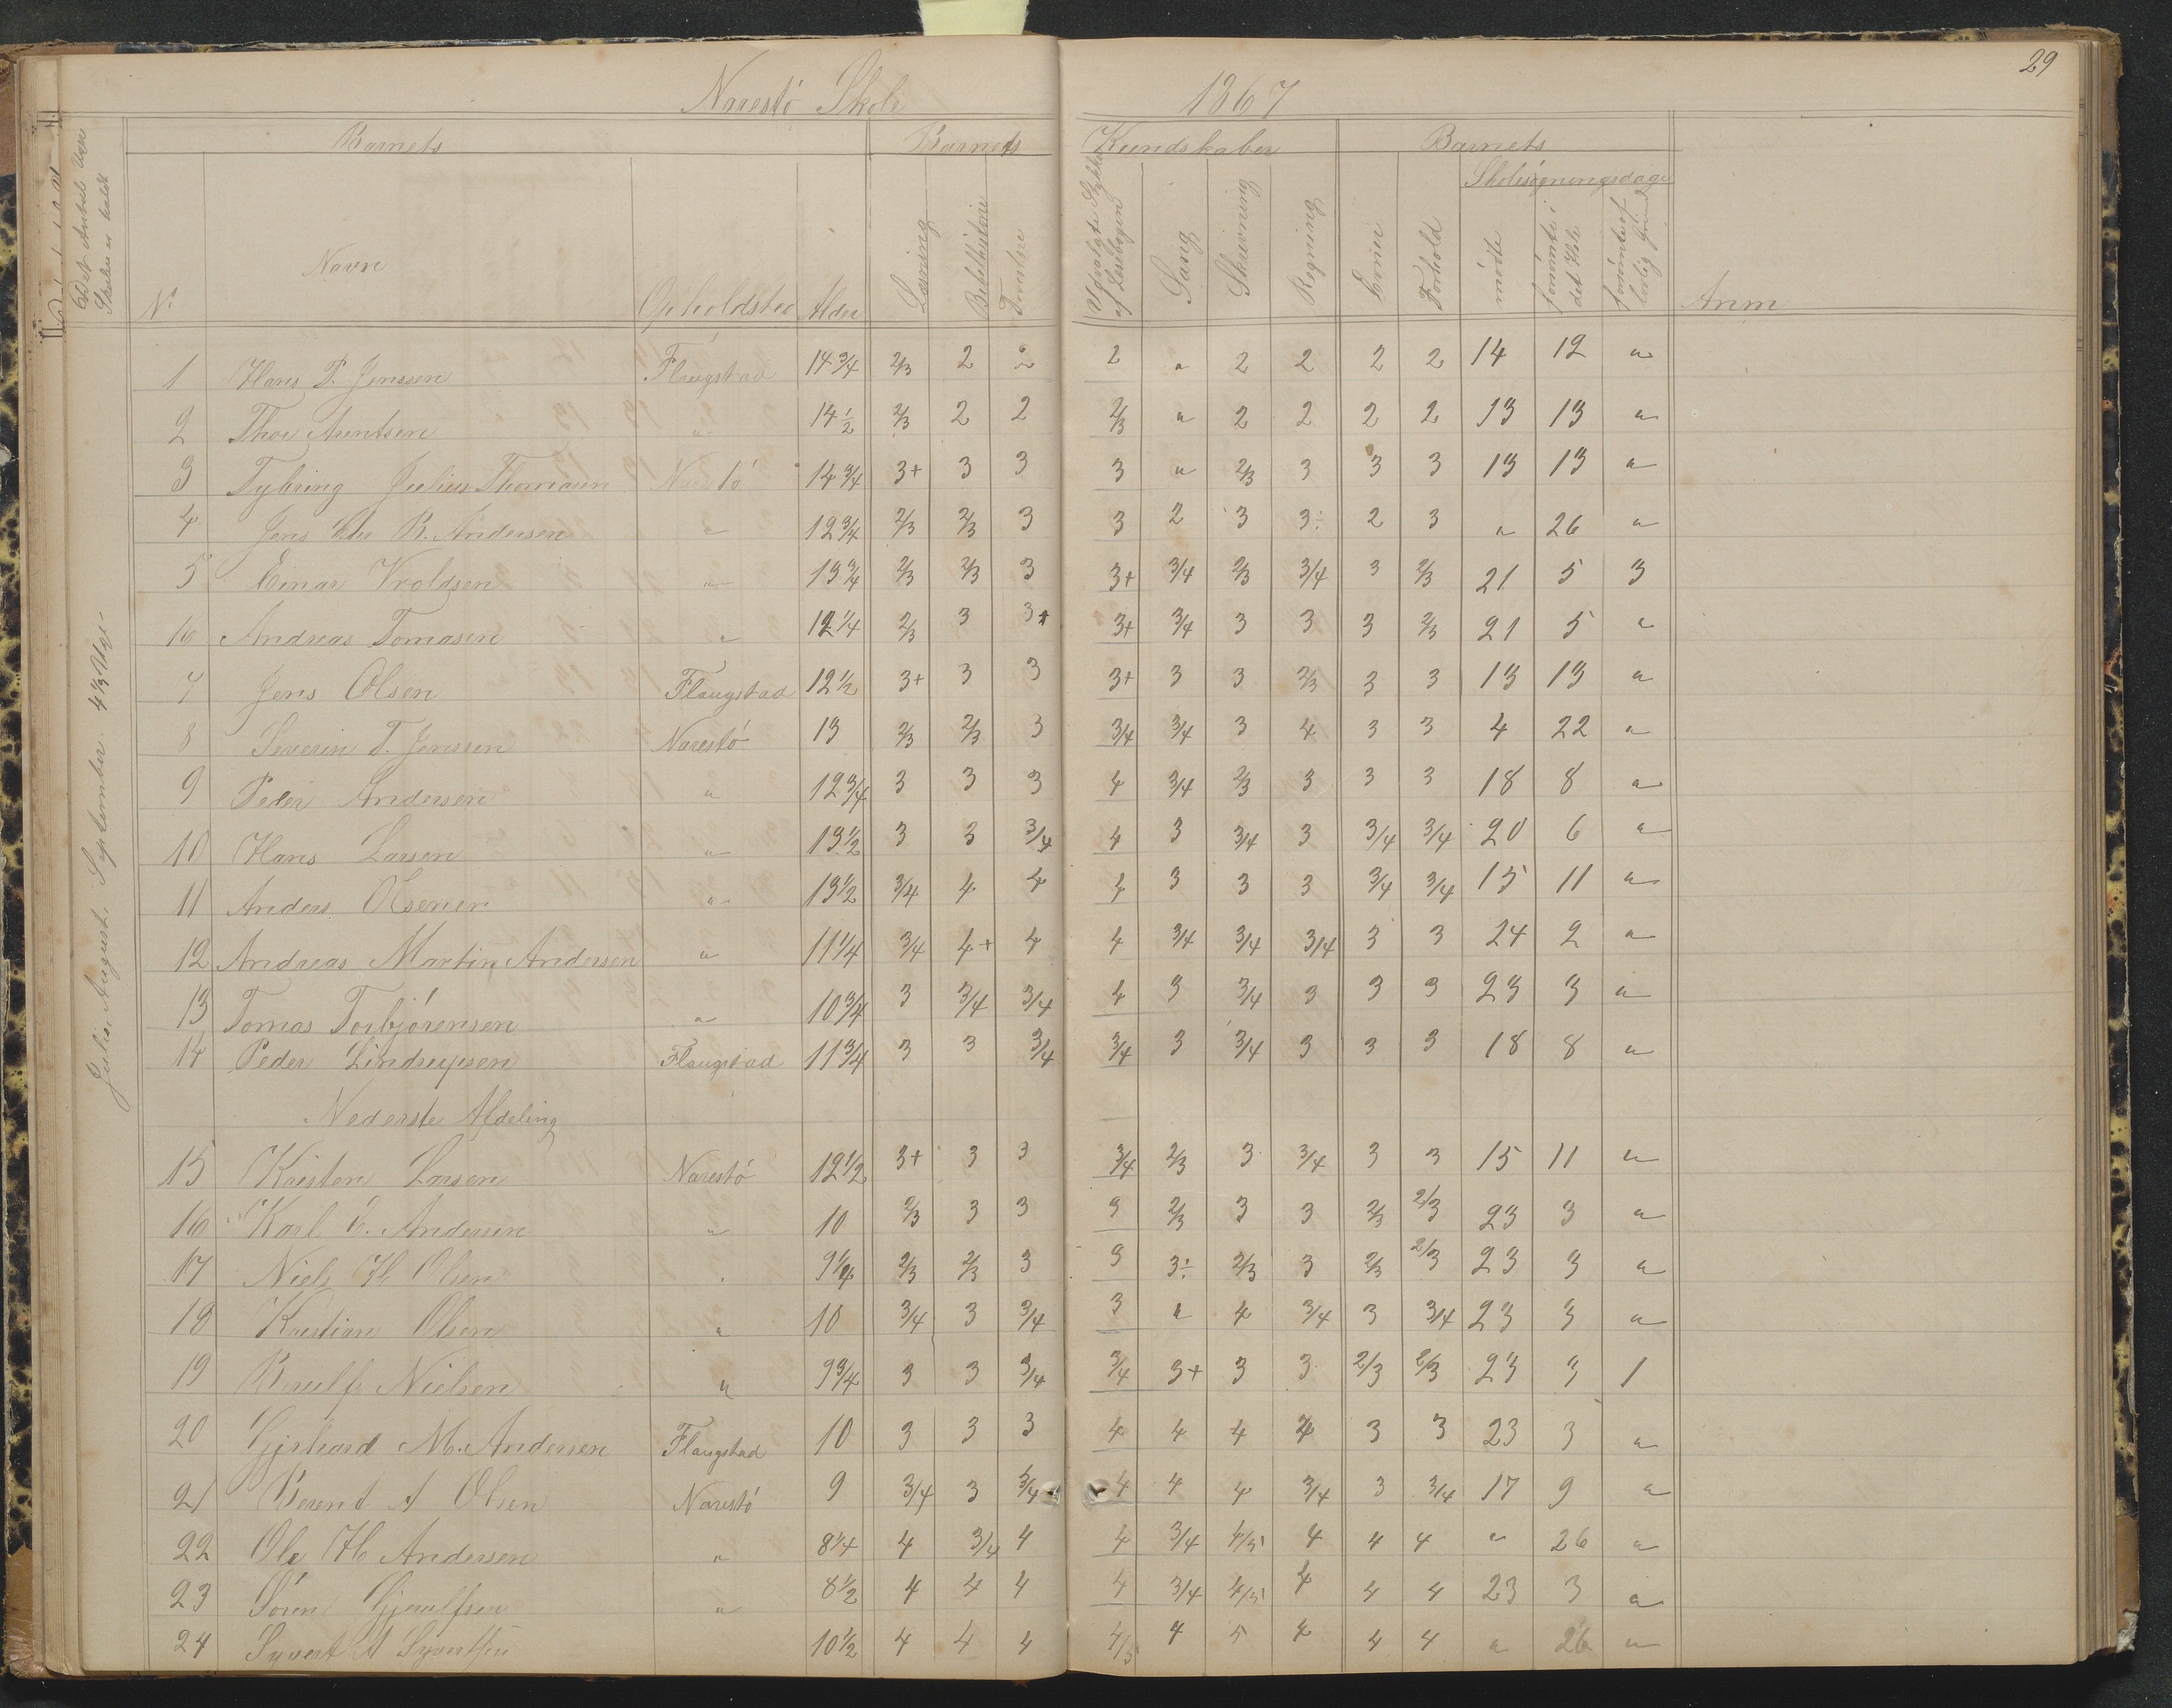 29
Narestö Skole 1867
Barnets Barnets Kundskaber Barnets
Skolesögningsdage
Det Antal Uger Skolen er holdt
No Navn Opholdsted Alder Læsning Bibelhistorie Troeslære Udvalgte Stykker af Læsebogen Sang Skrivning Regning Evner Forhold mödte forsömte i det Hele forsömte af lovlig Grund Anm
Julii, August, September 4 1/3 Uge
1 Hans P. Jenssen Flaugstad 14 3/4 2/3 2 2 2 " 2 2 2 2 14 12 "
2 Thor Arentsen " 14 1/2 2/3 2 2 2/3 " 2 2 2 2 13 13 "
3 Tybring Julius Thomasen Narestö 14 3/4 3+ 3 3 3 " 2/3 3 3 3 13 13 "
4 Jens Chr B. Andersen " 12 3/4 2/3 2/3 3 3 2 3 3÷ 2 3 " 26 "
5 Einar Vroldsen " 13 3/4 2/3 2/3 3 3+ 3/4 2/3 3/4 3 2/3 21 5 3
6 Andreas Tomasen " 12 1/4 2/3 3 3+ 3+ 3/4 3 3 3 2/3 21 5 "
7 Jens Olsen Flaugstad 12 1/2 3+ 3 3 3+ 3 3 2/3 3 3 13 13 "
8 Severin T. Jenssen Narestö 13 2/3 2/3 3 3/4 3/4 3 4 3 3 4 22 "
9 Peder Andersen " 12 3/4 3 3 3 4 3/4 2/3 3 3 3 18 8 "
10 Hans Larsen " 13 1/2 3 3 3/4 4 3 3/4 3 3/4 3/4 20 6 "
11 Anders Olsenen " 13 1/2 3/4 4 4 4 3 3 3 3/4 3/4 15 11 "
12 Andreas Martin Andersen " 11 1/4 3/4 4+ 4 4 3/4 3/4 3/4 3 3 24 2 "
13 Tomas Torbjörensen " 10 3/4 3 3/4 3/4 4 3 3/4 3 3 3 23 3 "
14 Peder Lindrupsen Flaugstad 11 3/4 3 3 3/4 3/4 3 3/4 3 3 3 18 8 "
Nederste Afdeling
15 Kristen Larsen Narestö 12 1/2 3+ 3 3 3/4 2/3 3 3/4 3 3 15 11 "
16 Karl E. Andersen " 10 2/3 3 3 3 2/3 3 3 2/3 2/3 23 3 "
17 Niels H Olsen " 9 1/4 2/3 2/3 3 3 3÷ 2/3 3 2/3 2/3 23 3 "
18 Kristian Olsen " 10 3/4 3 3/4 3 " 4 3/4 3 3/4 23 3 "
19 Nielsen " 9 3/4 3 3 3/4 3/4 3+ 3 3 2/3 2/3 23 3 1
20 Gjerhard M. Andersen Flaugstad 10 3 3 3 4 4 4 4 3 3 23 3 "
21 Berent A Olsen Narestö 9 3/4 3 3/4 4 4 4 3/4 3 3/4 17 9 "
22 Ole H Andersen " 8 1/4 4 3/4 4 4 3/4 4/5 4 4 4 " 26 "
23 Sören Gjeruldsen " 8 1/2 4 4 4 4 3/4 4/5 4 4 4 23 3 "
24 Syvert A Syvertsen 10 1/2 4 4 4 4/5 4 5 4 4 4 " 26 "